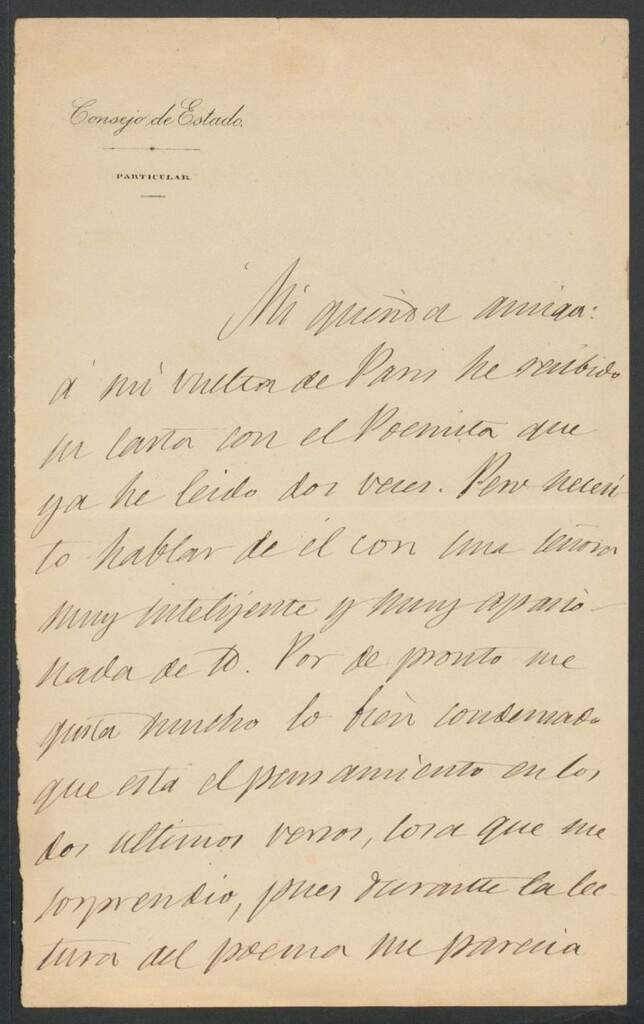 Consejo de Estado.
PARTICULAR.
Mi querida amiga:
á mi vuelta de Paris he recibido
su carta con el Poemita que
ya he leido dos veces. Pero necesi
to hablar de él con una señora
muy intelijente y muy apasio-
nada de V. Por de pronto me
gusta mucho lo bien condensado
que está el pensamiento en los
dos ultimos versos, cosa que me
sorprendio, pues durante la lec-
tura del poema me parecia